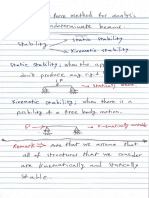 force method for analysis
indeterminate beams
Stability
Static stability
Kinematic stability
Static stability; when the app
don't produce any rigid
P
statically
Kinematic stability; when there is a
possibility of a free body motion.
P
Kinematically unstable
Remark: we that we assume that
all of structural that we consider
are kinematically and statically
stable.